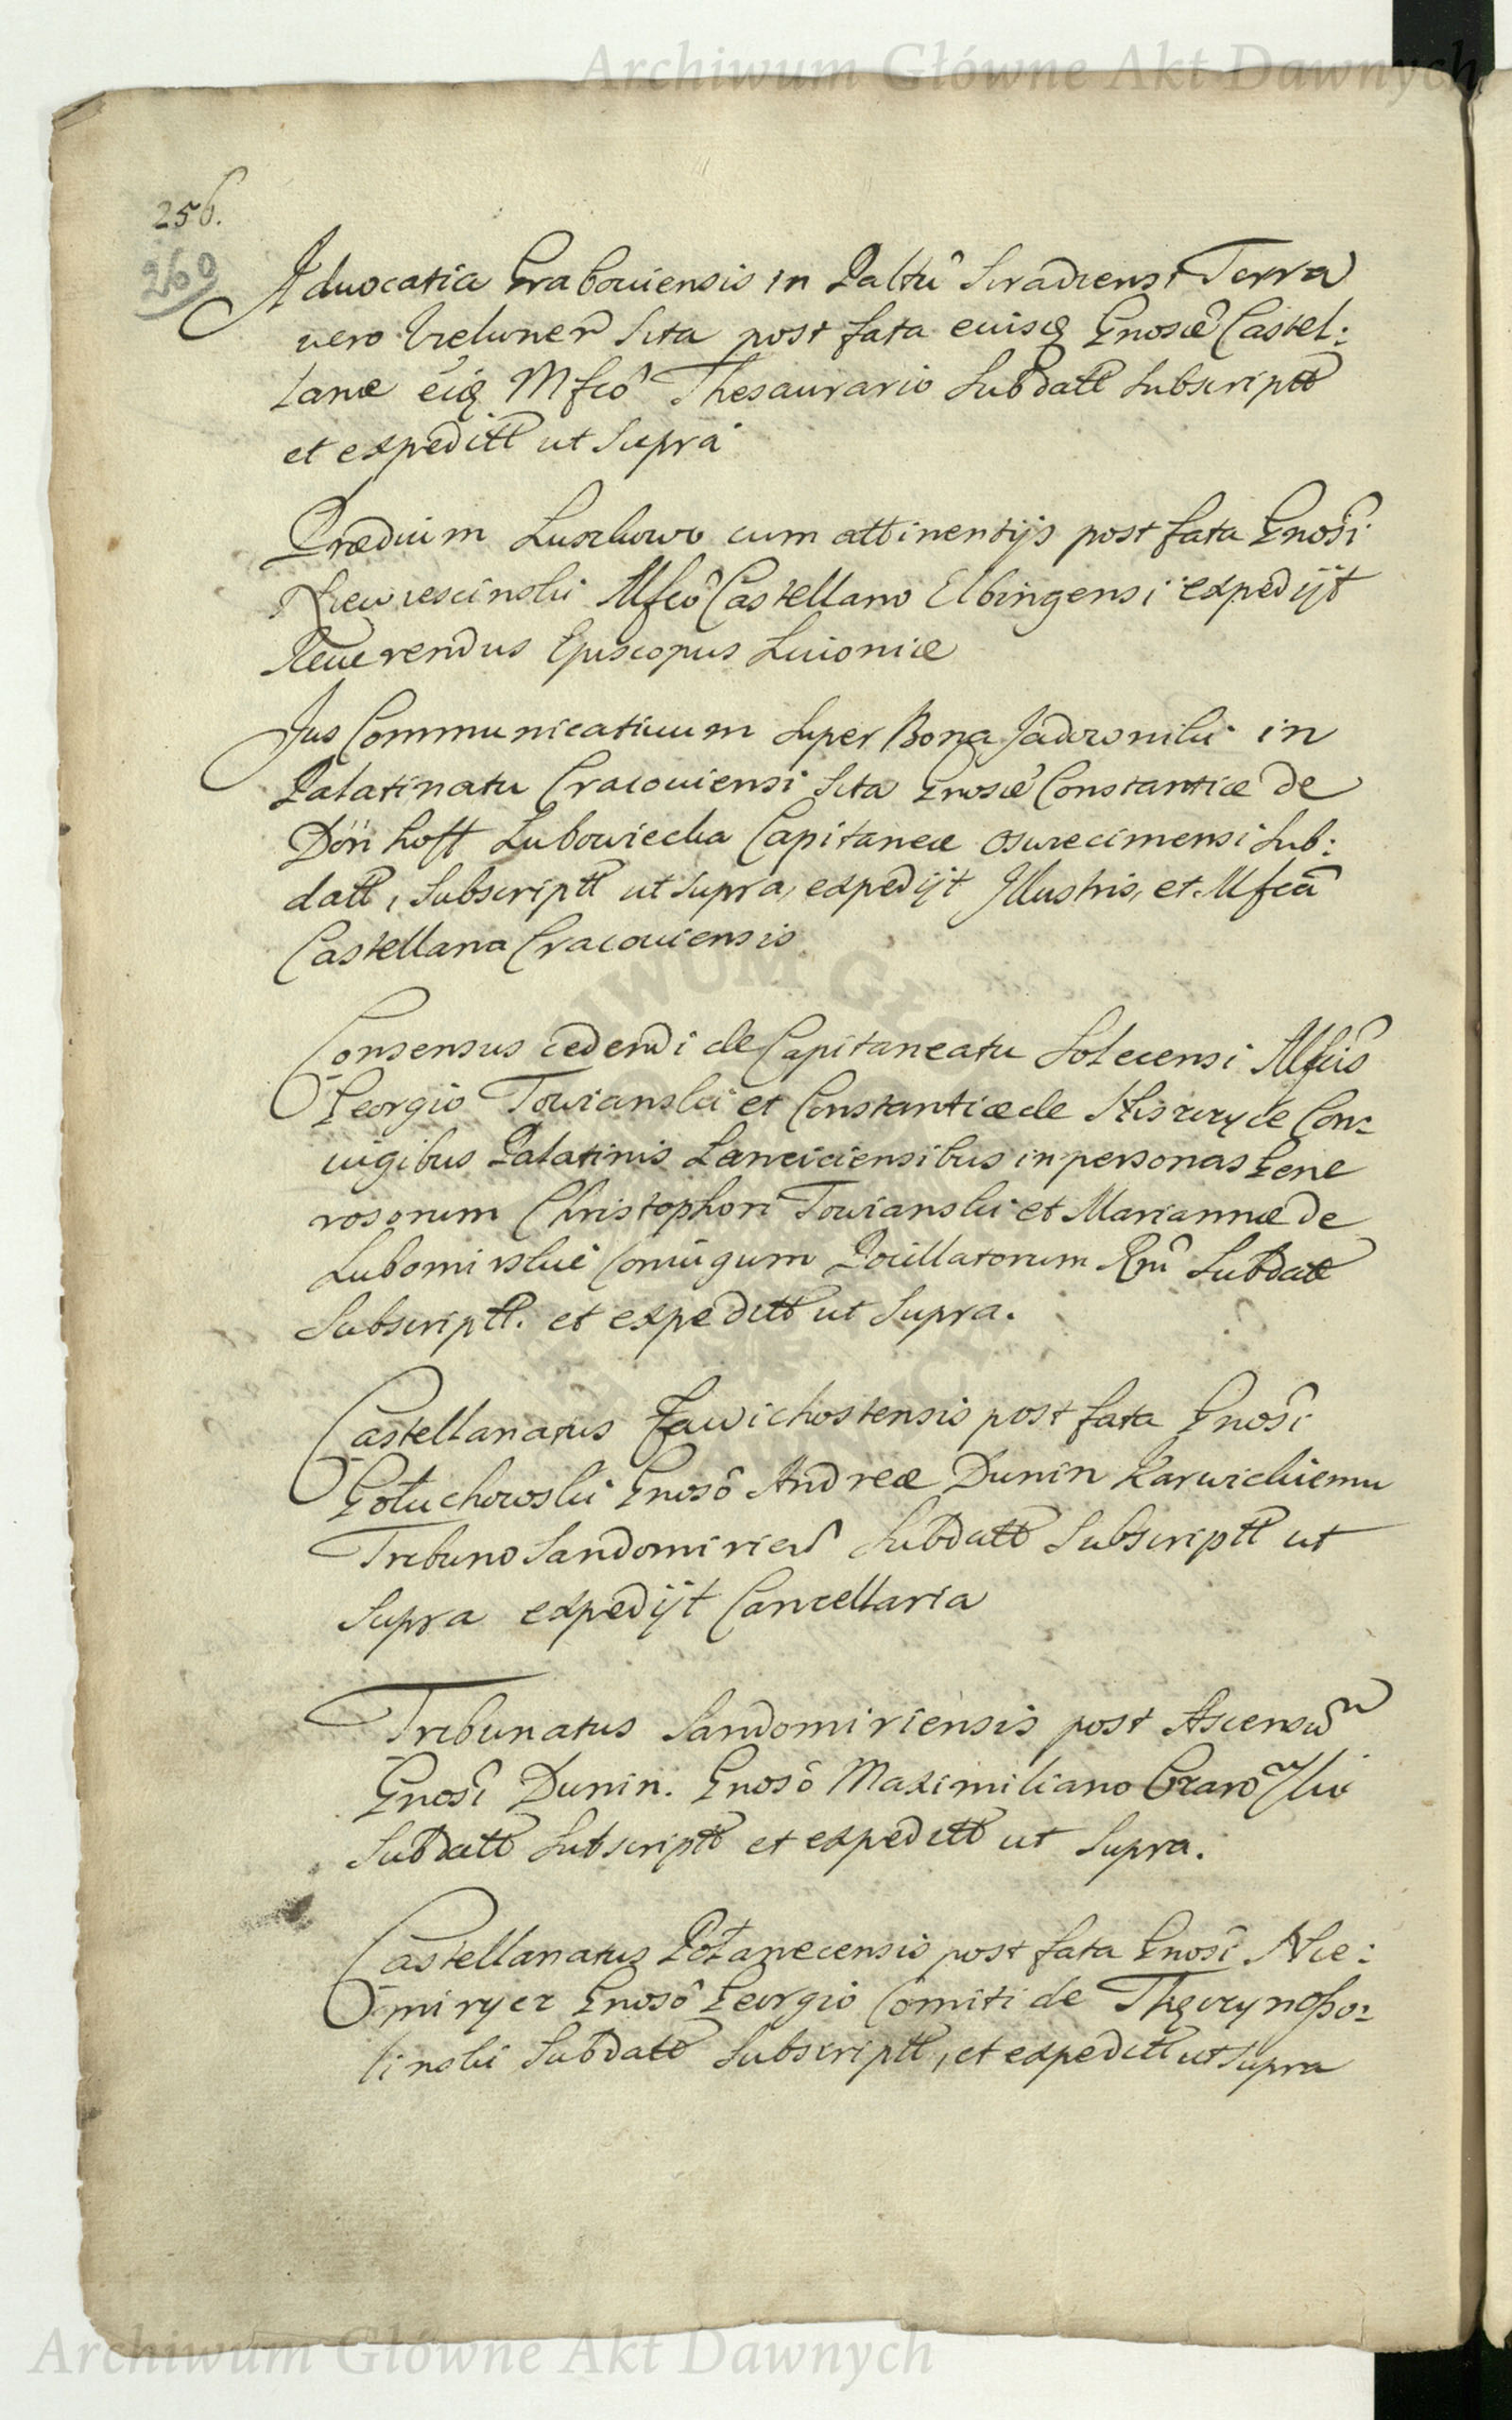 Archiwum Główne Akt Dawnych
256.
260
Advocatia Grabouiensis in Palttû Siradiensi Terra
vero Vielunen̄ Sita post fata euisq̨ Gnosæ Castel:
lanæ eiq̨ Mfcô Thesaurario Subdatt Subscriptt
et expeditt ut Supra
Prædium Luszkowo cum attinentijs post fata Gnosî
Mfcô Castellano Elbingensi expedijt
Reuerendus Episcopus Liuoniæ
Jus Communicatiuum Super Bona Jadowniki in
Palatinatu Cracouiensi Sita Gnosæ Constantiæ de
Dönhoff Lubowiecka Capitaneæ Oswiecimensi Sub:
datt, Subscriptt ut Supra, expedijt Jllustris, et Mfcâ
Castellana Cracouiensis
Consensus cedendi de Capitaneatu Solecensi Mfcis
Georgio Towianski et Constantiæ de Niszczyce Con:
iugibus Palatinis Lanciciensibus in personas Gene
rosorum Christophori Towianski et Mariannæ de
Lubomirskie Coniugum Pocillatorum Rni Subdatt
Subscriptt. et expeditt ut Supra.
Castellanatus Zawichostensis post fata Gnosî
Gołuchowski Gnosô Andreæ Dunin Karwickiemu
Tribuno Sandomirien̄ Subdatt Subscriptt ut
Supra expedijt Cancellaria
Tribunatus Sandomiriensis post Ascensum
Gnosî Dunin. Gnosô Maximiliano Ożarowski
Subdatt Subscriptt et expeditt ut Supra.
Castellanatus Połanecensis post fata Gnosî Nie:
miryez Gnosô Georgio Comiti de Thęczyn Osso:
linski Subdatt Subscriptt, et expeditt ut Supra
Archiwum Główne Akt Dawnych